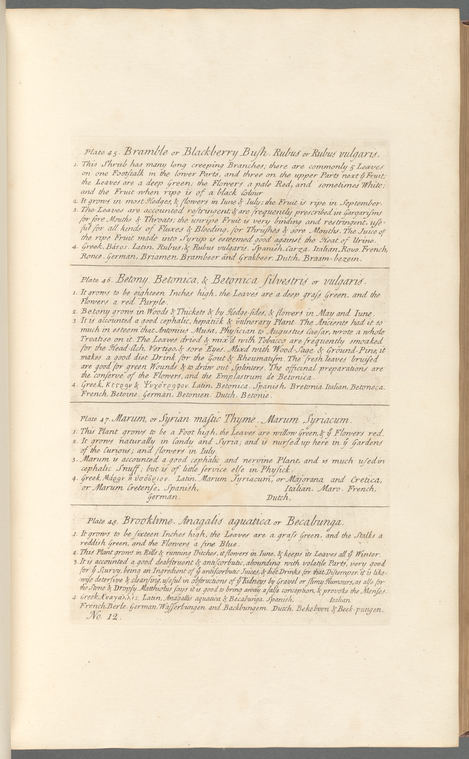 Plate 45. Bramble or Blackberry Bush. Rubus or Rubus vulgaris.
1. This Shrub has many long creeping Branches, there are commonly 5 Leaves
on one Footstalk in the lower Parts, and three on the upper Parts next ye Fruit;
the Leaves are a deep Green, the Flowers a pale Red, and sometimes White;
and the Fruit when ripe is of a black Colour
2. It grows in most Hedges, & flowers in June & July; the Fruit is ripe in September.
3. The Leaves are accounted restringent, & are frequently prescribed in Gargarisms
for sore Mouths & Throats; the unripe Fruit is very binding and restringent, use-
ful for all kinds of Fluxes & Bleeding, for Thrushes & sore Mouths. The Juice of
the ripe Fruit made into Syrup is esteemed good against the Heat of Urine.
4. Greek, Βάτος. Latin, Rubus, & Rubus vulgaris. Spanish, Carza. Italian, Rovo. French,
Ronce. German, Bramen Brambeer and Grakbeer. Dutch, Braam-bezein.
Plate 46. Betony. Betonica, & Betonica silvestris or vulgaris.
1. It grows to be eighteen Inches high, the Leaves are a deep grass Green, and the
Flowers a red Purple.
2. Betony grows in Woods & Thickets & by Hedge-sides, & flowers in May and June.
3. It is accounted a good cephalic, hepatick & vulnerary Plant. The Ancients had it so
much in esteem that Antonius Musa, Physician to Augustus Caesar, wrote a whole
Treatise on it. The Leaves dried & mix'd with Tobacco are frequently smoaked
for the Head-Ach, Vertigo, & sore Eyes. Mixed with Wood Sage, & Ground-Pine, it
makes a good diet Drink for the Gout & Rheumatism. The fresh Leaves bruised
are good for green Wounds & to draw out Splinters. The officinal preparations are
the conserve of the Flowers, and the Emplastrum de Betonica.
4. Greek, Κέςρον & Ψυχότροφον. Latin, Betonica. Spanish, Bretonia. Italian, Betonica.
French, Betoine. German, Betonien. Dutch, Betonie.
Plate 47. Marum, or Syrian mastic Thyme. Marum Syriacum
1. This Plant grows to be a Foot high, the Leaves are willow Green, & ye Flowers red.
2. It grows naturally in Candy and Syria; and is nursed up here in ye Gardens
of the Curious; and flowers in July.
3. Marum is accounted a good cephalic and nervine Plant, and is much used in
cephalic Snuff, but is of little service else in Physick.
4. Greek, Latin, Marum Syriacum, or Majorana and Cretica,
or Marum Cretense. Spanish, Italian, Maro. French,
German, Dutch,
Plate 48. Brooklime. Anagalis aquatica or Becabunga.
1. It grows to be sixteen Inches high, the Leaves are a grass Green, and the Stalks a
reddish Green, and the Flowers a fine Blue.
2. This Plant grows in Rills & running Ditches, it flowers in June, & keeps its Leaves all ye Winter.
3. It is accounted a good deobstruent & antiscorbutic, abounding with volatile Parts, very good
for ye Scurvy, being an Ingredient of ye antiscorbutic Juices, & diet Drinks for that Distemper; it is like-
wise detersive & cleansing, useful in obstructions of ye Kidneys by Gravel or slimy Humours, as also for
the Stone & Dropsy. Matthiolus says it is good to bring away a false conception, & provoke the Menses.
4. Greek, Latin, Anagallis aquatica & Becabunga. Spanish, Italian
French, Berle. German, Wasserbungen and Bachbungem. Dutch, Bekeboon & Beek-pungen.
No. 12.